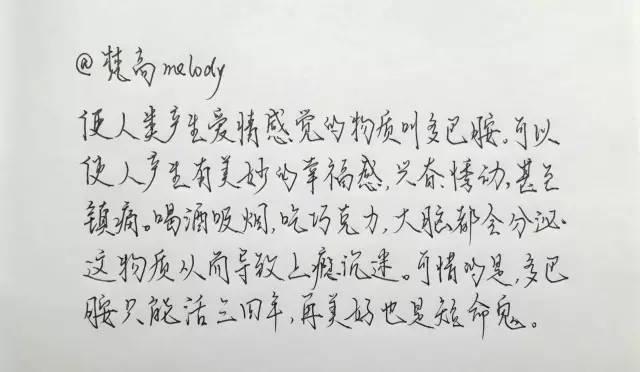 @梵高melody
使人类产生爱情感觉的物质叫多巴胺。可以
使人产生有美妙的幸福感,兴奋情动,甚至
镇痛。喝酒吸烟,吃巧克力,大脑都会分泌
这物质从而导致上瘾沉迷。可惜的是,多巴
胺只能活三四年,再美好也是短命鬼。